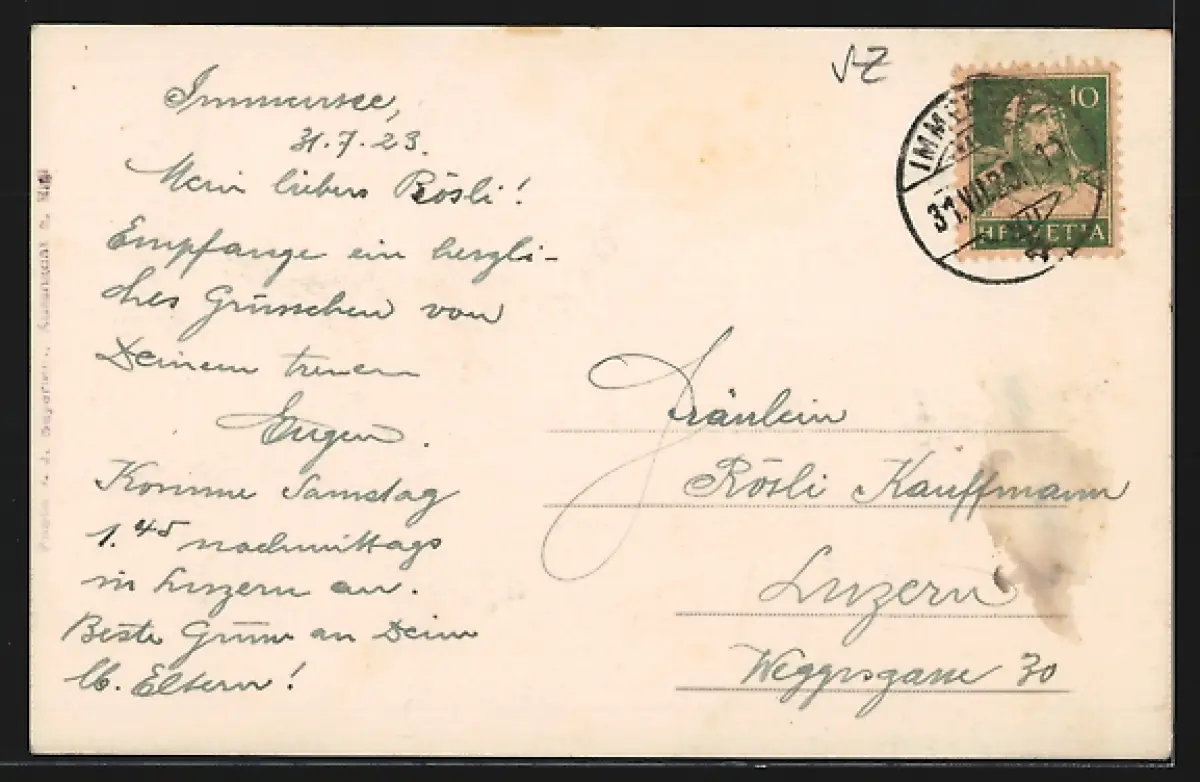 Immensee,
31.7.23.
Mein liebes Rösli!
Empfange ein herzli-
ches Grüsschen von
Deinem treuen
Eugen.
Komme Samstag
1.45 nachmittags
in Luzern an.
Beste Grüsse an Deine
lb. Eltern!
10
HELVETIA
Fräulein
Rösli Kauffmann
Luzern
Weggisgasse 30